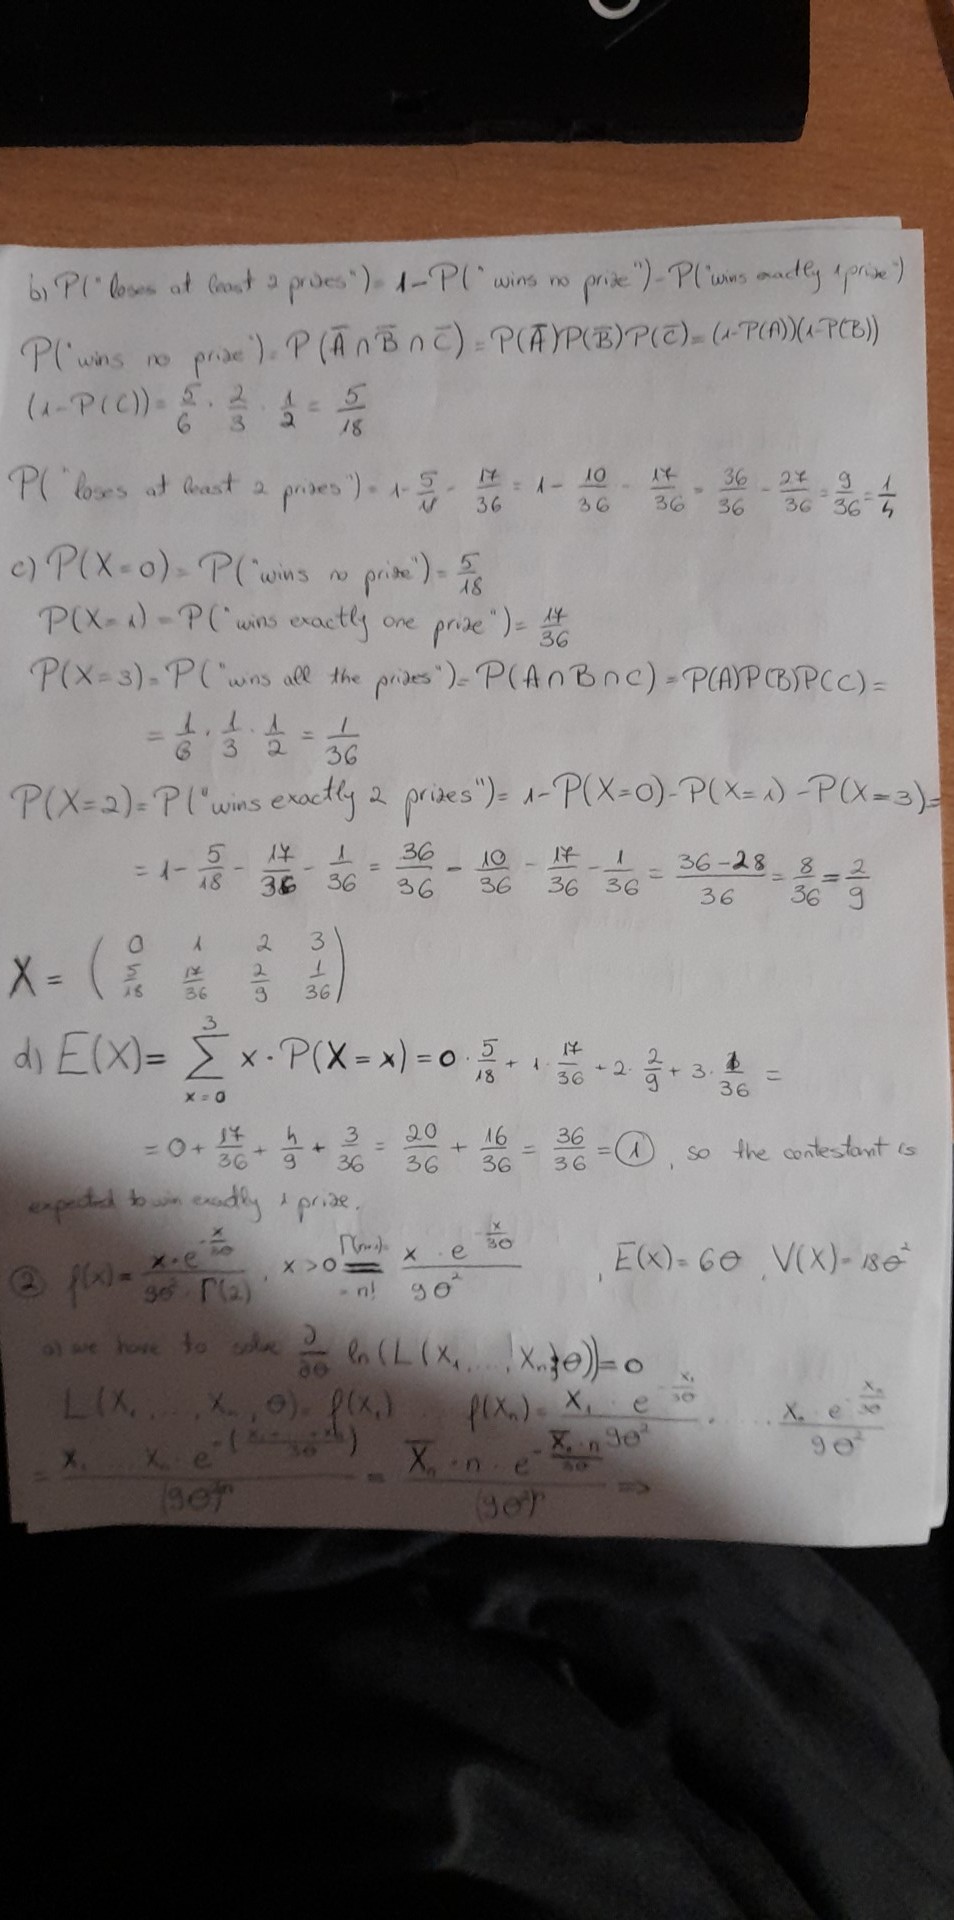 b) P("loses at least 2 prizes") = 1 - P("wins no prize") - P("wins exactly 1 prize")
P("wins no prize") = P(A̅ ∩ B̅ ∩ C̅) = P(A̅)P(B̅)P(C̅) = (1-P(A))(1-P(B))
(1-P(C)) = 5/6 · 2/3 · 1/2 = 5/18
P("loses at least 2 prizes") = 1 - 5/18 - 17/36 = 1 - 10/36 - 17/36 = 36/36 - 27/36 = 9/36 = 1/4
c) P(X=0) = P("wins no prize") = 5/18
P(X=1) = P("wins exactly one prize") = 17/36
P(X=3) = P("wins all the prizes") = P(A∩B∩C) = P(A)P(B)P(C) =
= 1/6 · 1/3 · 1/2 = 1/36
P(X=2) = P("wins exactly 2 prizes") = 1-P(X=0)-P(X=1)-P(X=3) =
= 1 - 5/18 - 17/36 - 1/36 = 36/36 - 10/36 - 17/36 - 1/36 = (36-28)/36 = 8/36 = 2/9
X = ( 0 1 2 3
5/18 17/36 2/9 1/36 )
d) E(X) = ∑_{x=0}^{3} x · P(X=x) = 0 · 5/18 + 1 · 17/36 + 2 · 2/9 + 3 · 1/36 =
= 0 + 17/36 + 4/9 + 3/36 = 20/36 + 16/36 = 36/36 = 1, so the contestant is
expected to win exactly 1 prize.
2 f(x) = x·e^{-x/3θ} / 9θ²·Γ(2), x>0 Γ(n+1)= =n! x·e^{-x/3θ} / 9θ², E(X) = 6θ, V(X) = 18θ²
a) we have to solve ∂/∂θ ln(L(x₁, ..., xₙ; θ)) = 0
L(x₁, ..., xₙ, θ) = f(x₁) ... f(xₙ) = x₁·e^{-x₁/3θ} / 9θ² · ... · xₙ·e^{-xₙ/3θ} / 9θ²
= x₁ ... xₙ·e^{-(x₁+...+xₙ/3θ)} / (9θ²)ⁿ = X̅ₙ·n·e^{-X̅ₙ·n/3θ} / (9θ²)ⁿ =>